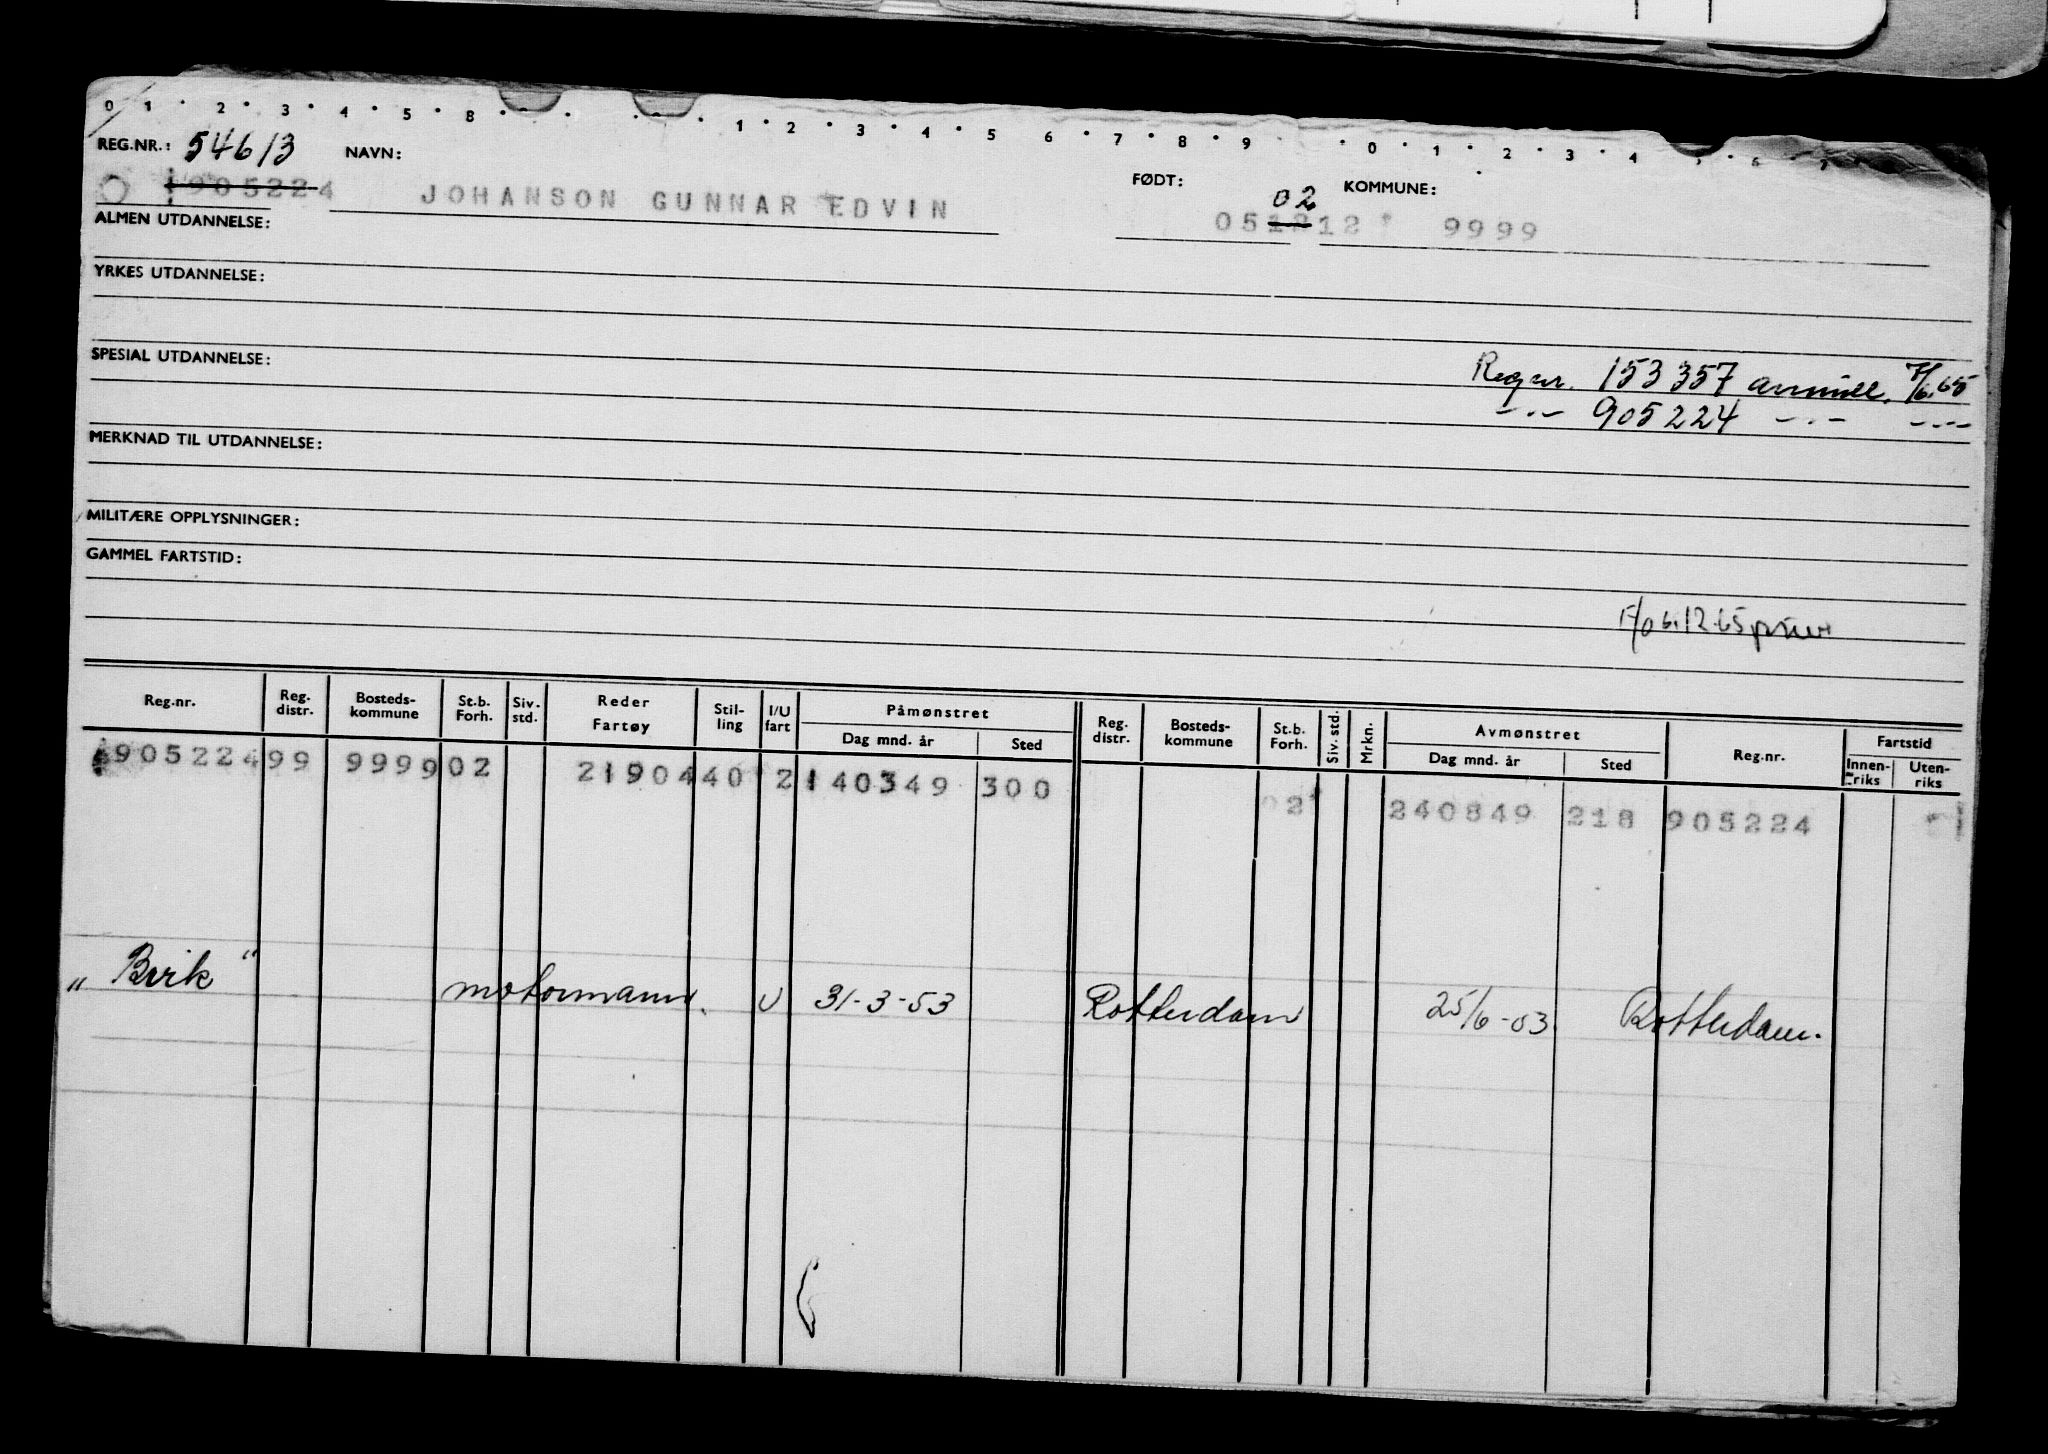 0 1 . 2 . 3 . 4 . 5 . 8 . . . 1 . 2 . 3 . 4 . 5 6 . 7 . 8 . 9 . 0 . 1 . 2 . 3 . 4 6
REG.NR.: 54613 NAVN: FØDT: 02 KOMMUNE:
905224 JOHANSON GUNNAR EDVIN 051212 9999
ALMEN UTDANNELSE:
YRKES UTDANNELSE:
SPESIAL UTDANNELSE:
Reg nr. 153357 annull. 7/6.65
-.- 905224 -.- -.-
MERKNAD TIL UTDANNELSE:
MILITÆRE OPPLYSNINGER:
GAMMEL FARTSTID:
6.12.65
Reg.nr. Reg. distr. Bosteds-kommune St.b. Forh. Siv. std. Reder Fartøy Stil-ling I/U fart Påmønstret Dag mnd. år Sted Reg. distr. Bosteds-kommune St.b. Forh. Siv. std. Mrkn. Avmønstret Dag mnd. år Sted Reg.nr. Fartstid Innen-riks Uten-riks
905224 99 9999 02 21904 40 2 140349 300 02 240849 218 905224
"Brik" motormann. U 31-3-53 Rotterdam 25/6-53 Rotterdam.